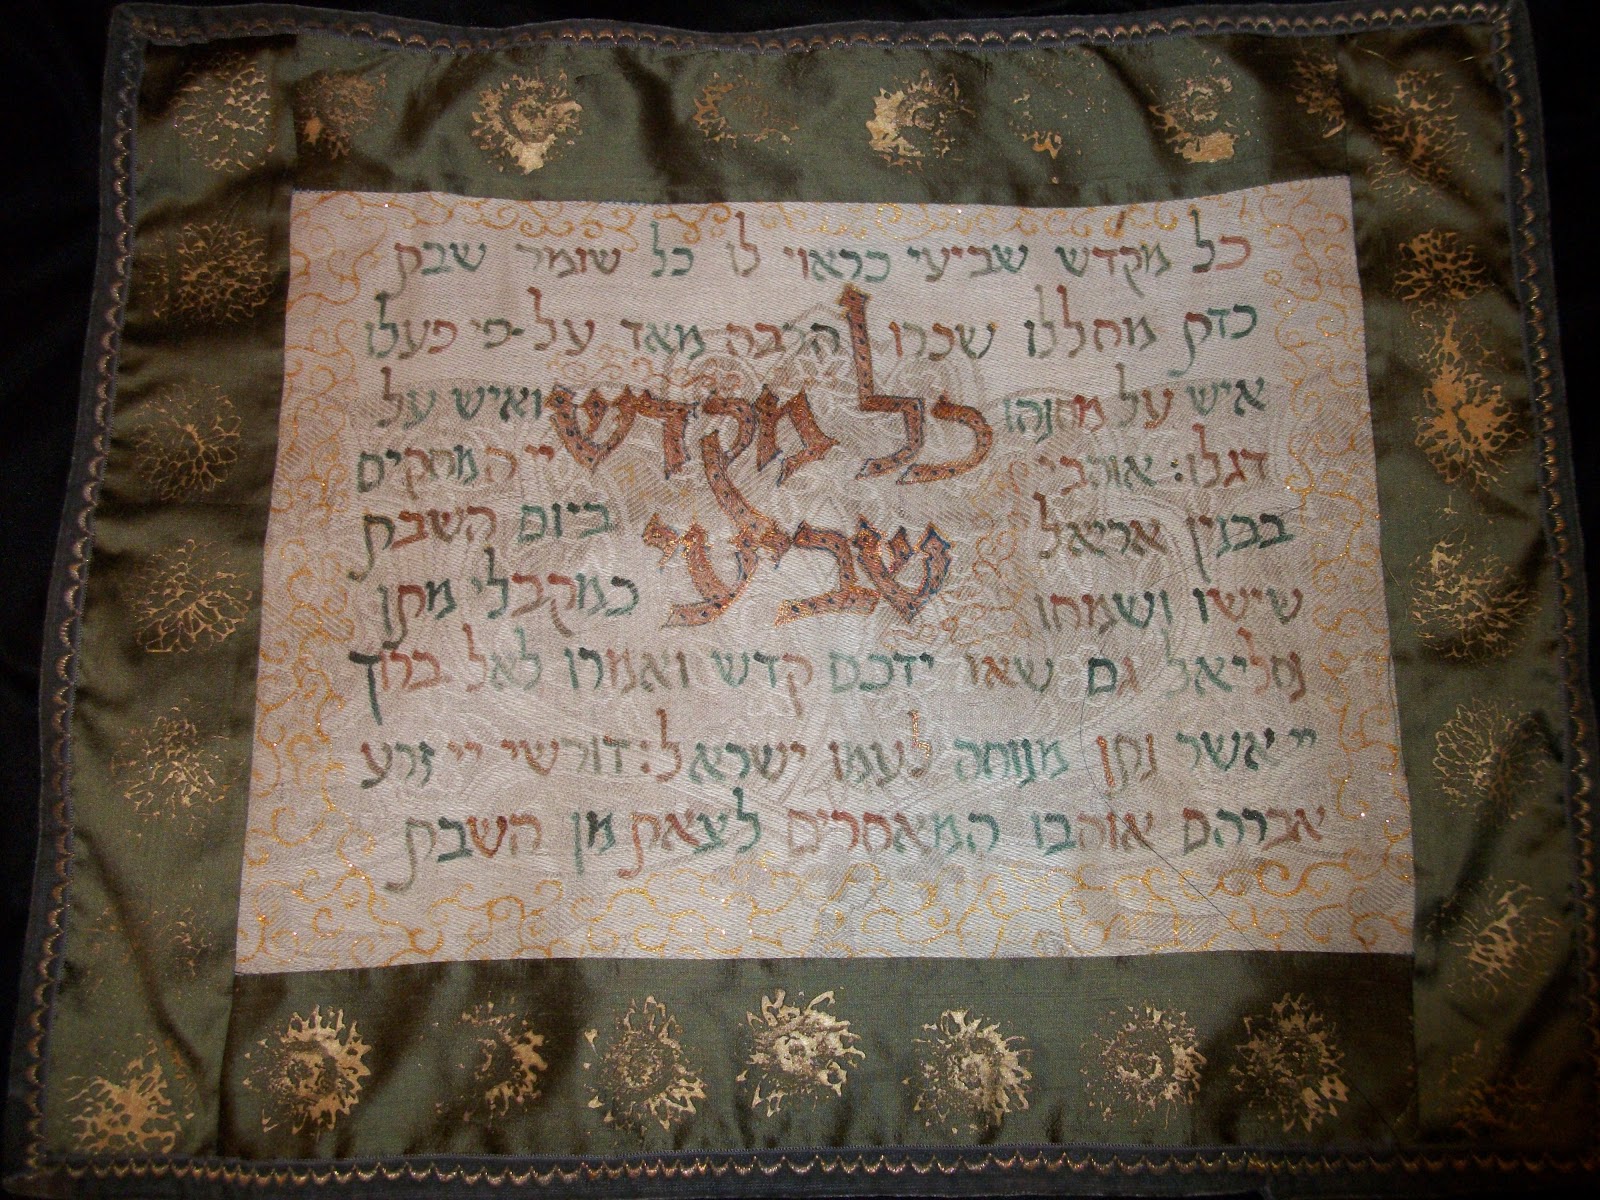 כל מקדש שביעי כראוי לו כל שומר שבת
כדת מחללו שכרו הרבה מאד על-פי פעלו
איש על מחנהו ואיש על
דגלו: אוהבי יי המחכים
בבנין אריאל ביום השבת
שישו ושמחו כמקבלי מתן
נחליאל גם שאו ידכם קדש ואמרו לאל ברוך
יי אשר נתן מנוחה לעמו ישראל: דורשי יי זרע
אברהם אוהבו המאחרים לצאת מן השבת
כל מקדש
שביעי